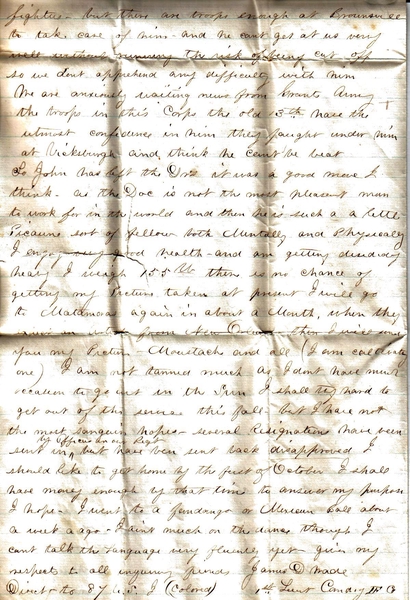 fighter - but there are troops enough at Brownsville
to take care of him - and he cant get at us very
well without running the risk of being cut off
so we dont apprehend any difficulty with him
We are anxiously waiting news from Grants Army
the troops in this Corps the old 13th have the
utmost confidence in him they fought under him
at Vicksburgh and think he cant be beat
So John has left the Doc it was a good move I
think - as the Doc is not the most pleasant man
to work for in the world and then he is such a little
Picaune sort of fellow both Mentally and Physically
I enjoy very good health - and am getting decidedly
heavy I weigh 155 lb there is no chance of
getting my Picture taken at present I will go
to Matamoras again in about a Month, when they
from New Orleans then I will send
you my Picture - Moustach and all (I am cultivating
one) I am not tanned much as I dont have much
occasion to go out in the Sun I shall try hard to
get out of the service this fall - but I have not
the most sanguin hopes - several Resignations have been
sent in by Officers in our Regt but have been sent back disapproved I
should like to get home by the first of October I shall
have money enough by that time to answer my purpose
I hope - I went to a fandango or Mexican Ball about
a week ago - I aint much on the dance though I
cant talk the language very fluently yet - give my
respects to all inquiring friends James D Wade
Direct to 87 U.S. I (Colored) 1st Lieut Comdg